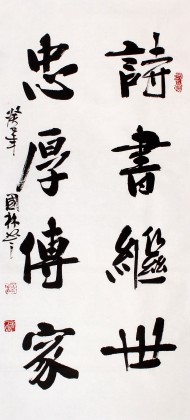 詩書繼世
忠厚傳家
癸巳年
國林書